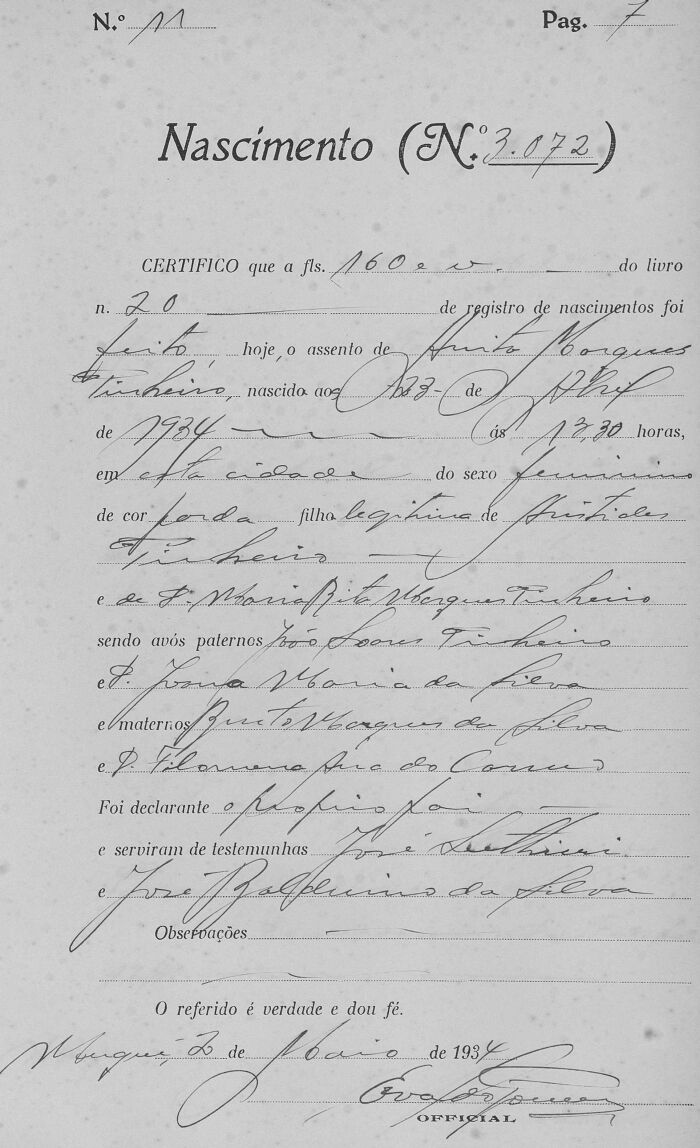 N.º 11 Pag. 7
Nascimento (N.º 3.072)
CERTIFICO que a fls. 160 e v. do livro
n. 20 de registro de nascimentos foi
feito, hoje, o assento de Anita Marques
Pinheiro, nascido aos 23 de Abril
de 1934 ás 13,30 horas,
em esta cidade do sexo feminino
de cor parda filho legitima de Aristides
Pinheiro
e de D. Maria Rita Marques Pinheiro
sendo avós paternos João Soares Pinheiro
e D. Joana Maria da Silva
e maternos Bento Marques da Silva
e D. Filomena Ana do Carmo
Foi declarante o proprio pai
e serviram de testemunhas José
e José Balduino da Silva
Observações
O referido é verdade e dou fé.
Muqui, 2 de Maio de 1934
OFFICIAL